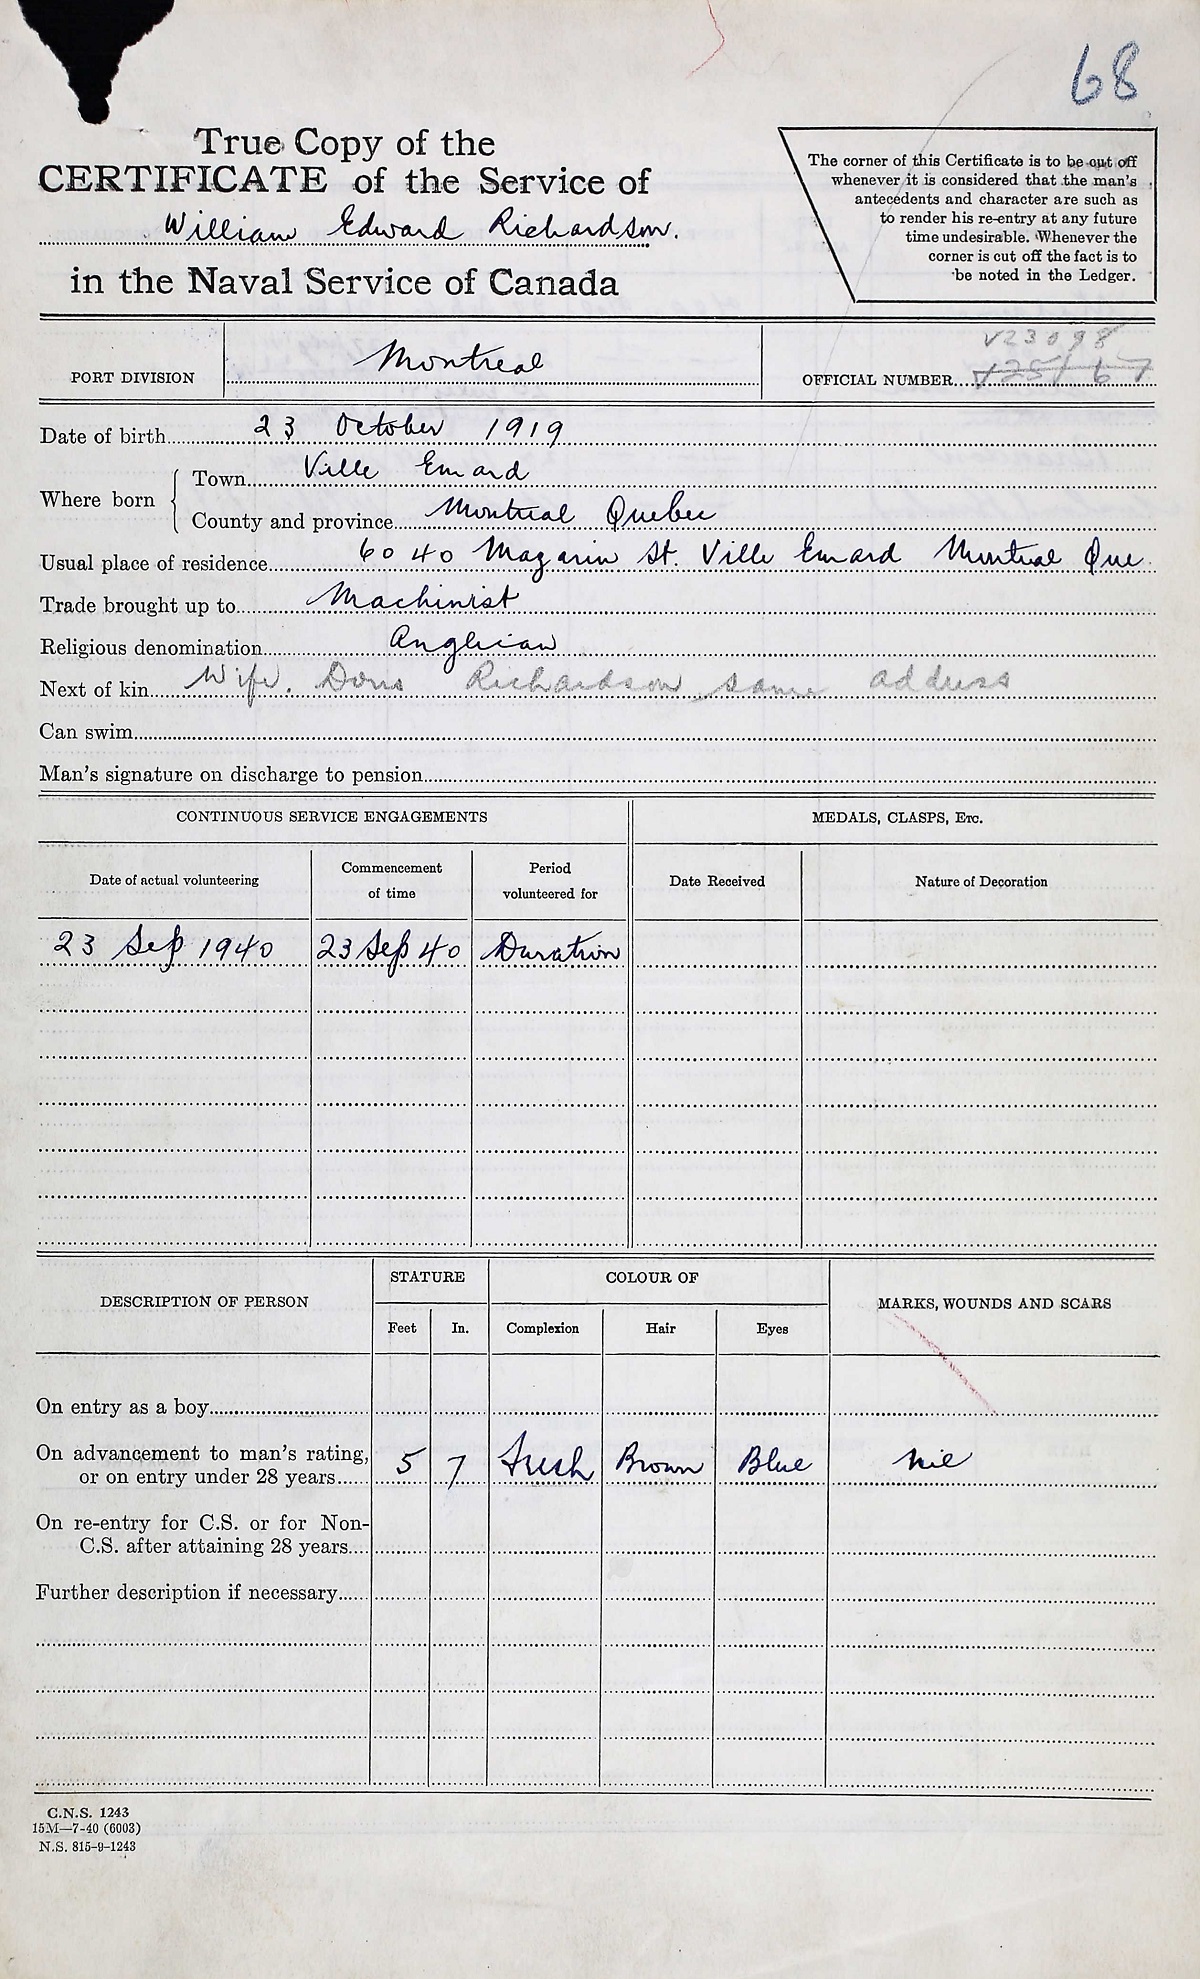 68
True Copy of the
CERTIFICATE of the Service of
William Edward Richardson.
in the Naval Service of Canada
The corner of this Certificate is to be cut off
whenever it is considered that the man's
antecedents and character are such as
to render his re-entry at any future
time undesirable. Whenever the
corner is cut off the fact is to
be noted in the Ledger.
PORT DIVISION Montreal
V23098
OFFICIAL NUMBER
Date of birth 23 October 1919
Where born
Town Ville Emard
County and province Montreal Quebec
Usual place of residence 6040 Mazarin St. Ville Emard Montreal Que.
Trade brought up to Machinist
Religious denomination Anglican
Next of kin Wife. Doris Richardson same address
Can swim
Man's signature on discharge to pension
CONTINUOUS SERVICE ENGAGEMENTS MEDALS, CLASPS, ETC.
Date of actual volunteering Commencement of time Period volunteered for Date Received Nature of Decoration
23 Sep 1940 23 Sep 40 Duration
DESCRIPTION OF PERSON STATURE COLOUR OF MARKS, WOUNDS AND SCARS
Feet In. Complexion Hair Eyes
On entry as a boy
On advancement to man's rating,
or on entry under 28 years 5 7 Fresh Brown Blue nil
On re-entry for C.S. or for Non-
C.S. after attaining 28 years
Further description if necessary
C.N.S. 1243
15M—7-40 (6003)
N.S. 815-9-1243